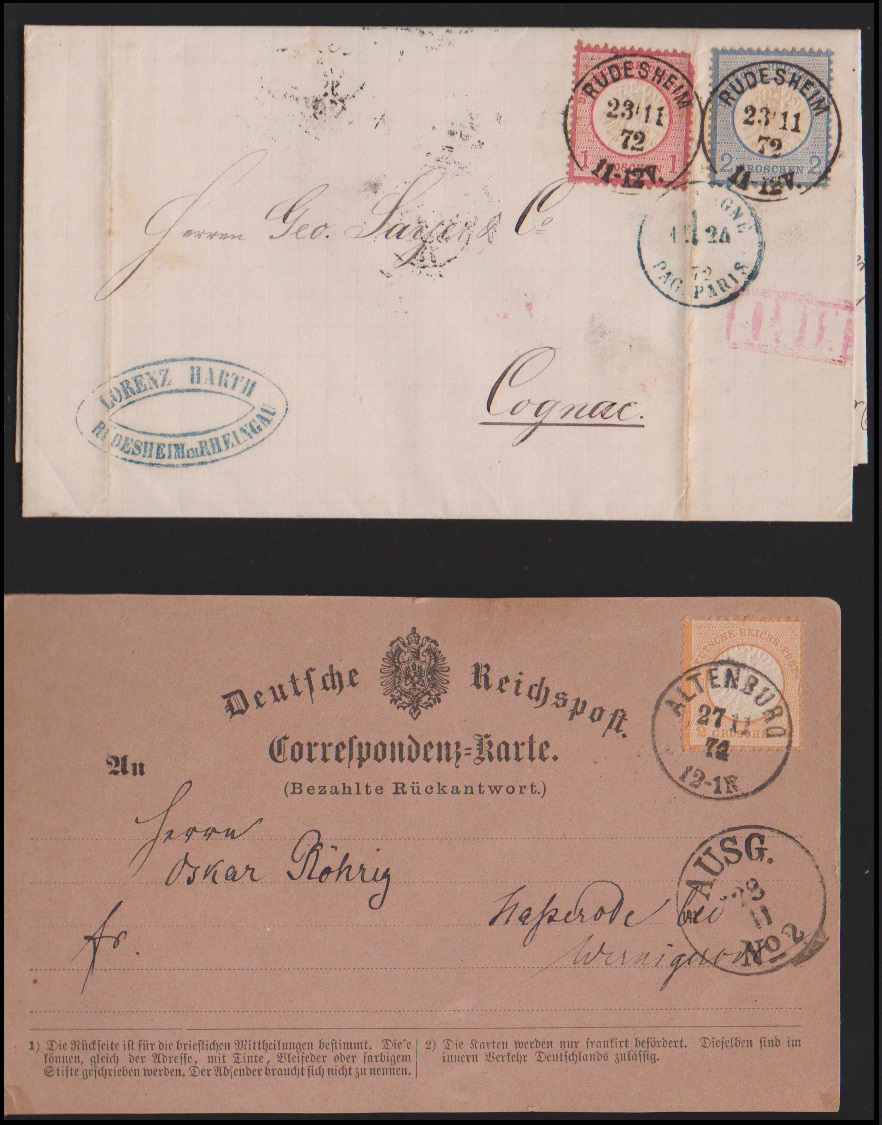 RUDESHEIM
23 11
72
11-12V.
1 GROSCHEN 1
RUDESHEIM
23 11
72
11-12V.
2 GROSCHEN 2
24
72
PAG. PARIS
P.D.
Herren Geo. Sayer & Co
Cognac.
LORENZ HARTH
RÜDESHEIM im RHEINGAU
Deutsche Reichspost.
Correspondenz-Karte.
(Bezahlte Rückantwort.)
DEUTSCHE REICHS-POST
GROSCHEN
ALTENBURG
27 11
72
12-1N
An
Herrn
Oskar Röhrig
Hasserode bei
Wernigerode
fr.
AUSG.
28
11
No 2
1) Die Rückseite ist für die brieflichen Mittheilungen bestimmt. Diese
können, gleich der Adresse, mit Tinte, Bleifeder oder farbigem
Stifte geschrieben werden. Der Absender braucht sich nicht zu nennen.
2) Die Karten werden nur frankirt befördert. Dieselben sind im
innern Verkehr Deutschlands zulässig.